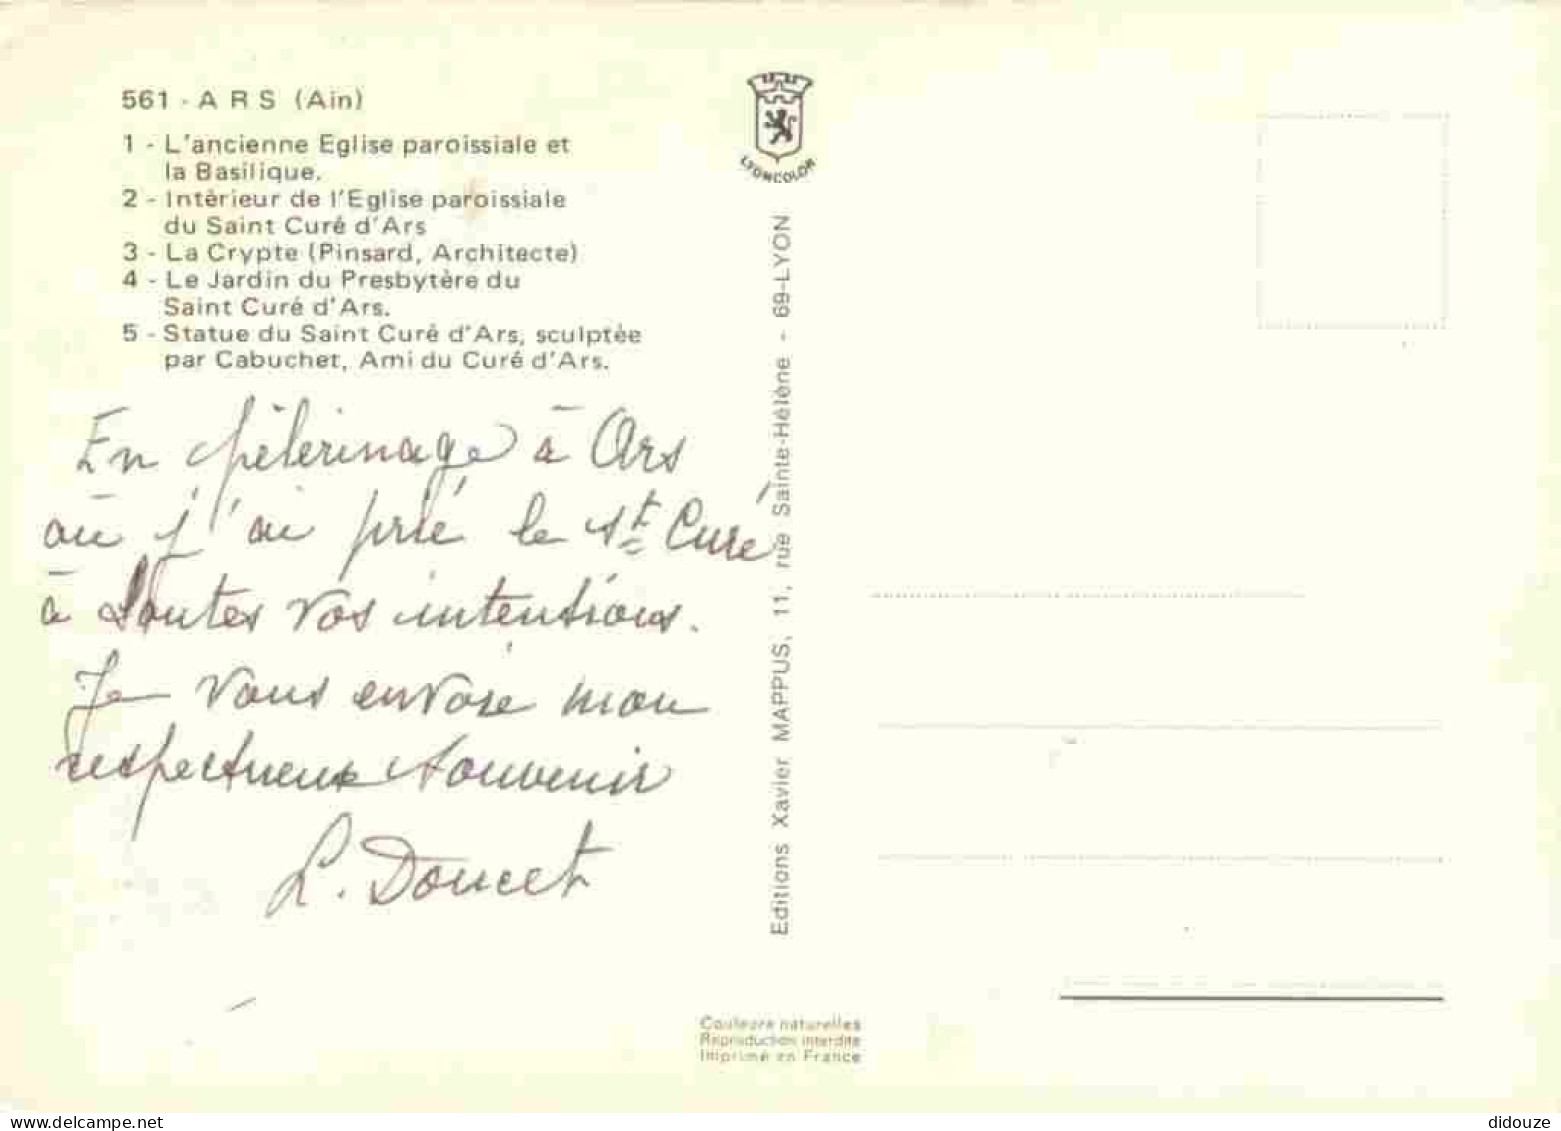 561 - A R S (Ain)
1 - L'ancienne Eglise paroissiale et
la Basilique.
2 - Intèrieur de l'Eglise paroissiale
du Saint Curé d'Ars
3 - La Crypte (Pinsard, Architecte)
4 - Le Jardin du Presbytère du
Saint Curé d'Ars.
5 - Statue du Saint Curé d'Ars, sculptée
par Cabuchet, Ami du Curé d'Ars.
En pèlerinage à Ars
où j'ai prié le St Curé
à toutes vos intentions.
Je vous envoie mon
respectueux souvenir
L. Doucet
LYONCOLOR
Editions Xavier MAPPUS, 11, rue Sainte-Hélène - 69-LYON
Couleurs naturelles
Reproduction interdite
Imprimé en France
delcampe.net
didouze